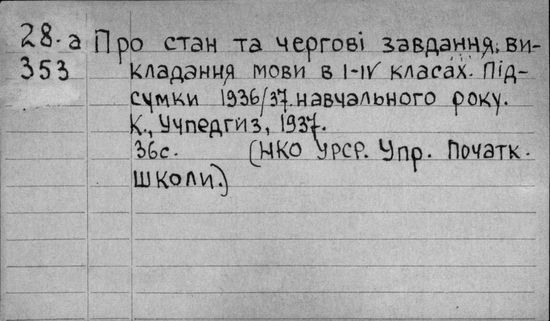 28.а Про стан та чергові завдання, ви-
353 кладання мови в I-IV класах. Під-
сумки 1936/37 навчального року.
К., Учпедгиз, 1937.
36с. (НКО УРСР. Упр. Початк.
школи.)